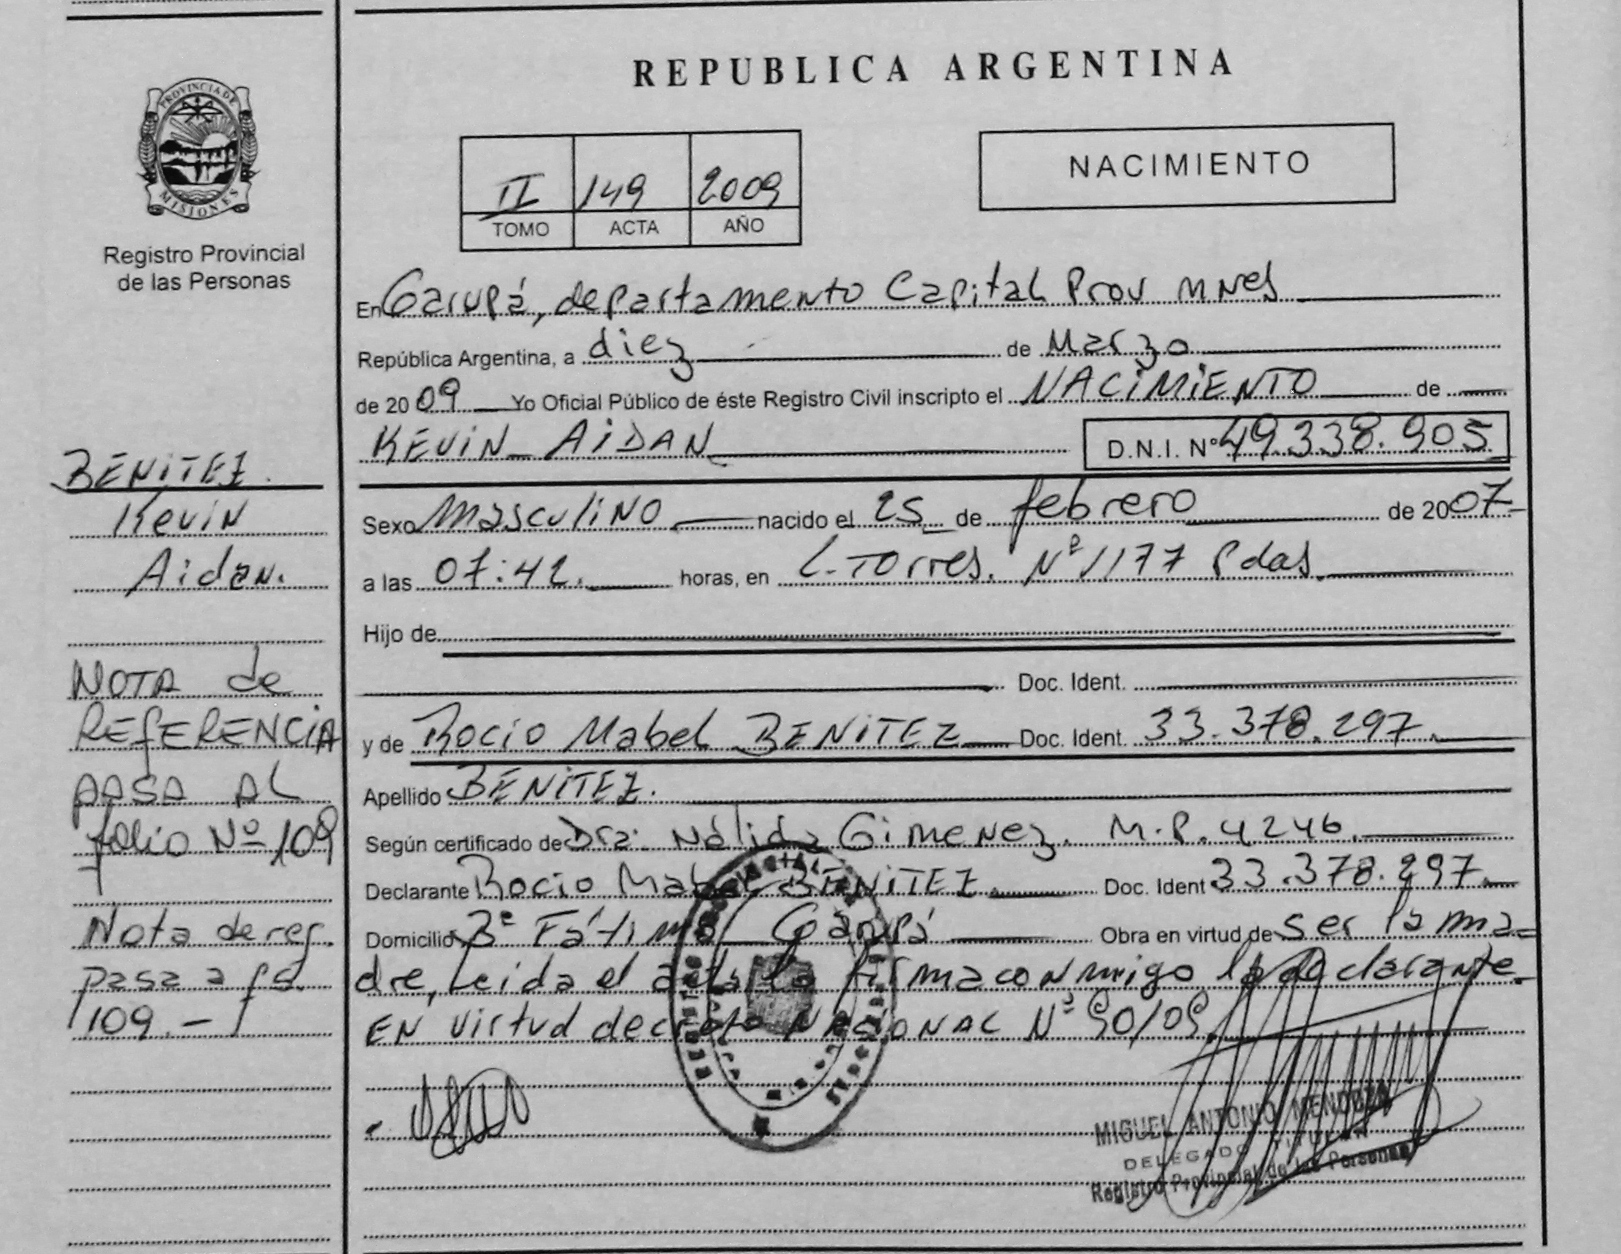 REPUBLICA ARGENTINA
PROVINCIA DE
MISIONES
Registro Provincial
de las Personas
II 149 2009
TOMO ACTA AÑO
NACIMIENTO
En Garupá, departamento Capital Prov Mnes
República Argentina, a diez de Marzo
de 2009 Yo Oficial Público de éste Registro Civil inscripto el NACIMIENTO de
KEVIN AIDAN D.N.I. Nº 49.338.905
Sexo Masculino nacido el 25 de febrero de 2007
a las 07:42. horas, en L. Torres. Nº 1177 Pdas.
Hijo de
Doc. Ident.
y de Rocio Mabel BENITEZ Doc. Ident. 33.378.297.
Apellido BENITEZ.
Según certificado de Dra: Nélida Gimenez. M.P. 4246.
Declarante Rocio Mabel BENITEZ. Doc. Ident 33.378.297.
Domicilio Bº Fátima Garupá Obra en virtud de ser la ma=
dre, Leida el acta la firma conmigo la declarante.
EN virtud decreto NACIONAL Nº 90/09.
MIGUEL ANTONIO MENDOZA
DELEGADO TITULAR
Registro Provincial de las Personas
BENITEZ.
Kevin
Aidan.
NOTA de
REFERENCIA
PASA AL
folio Nº 109
Nota de ref.
pasa a fs.
109.-